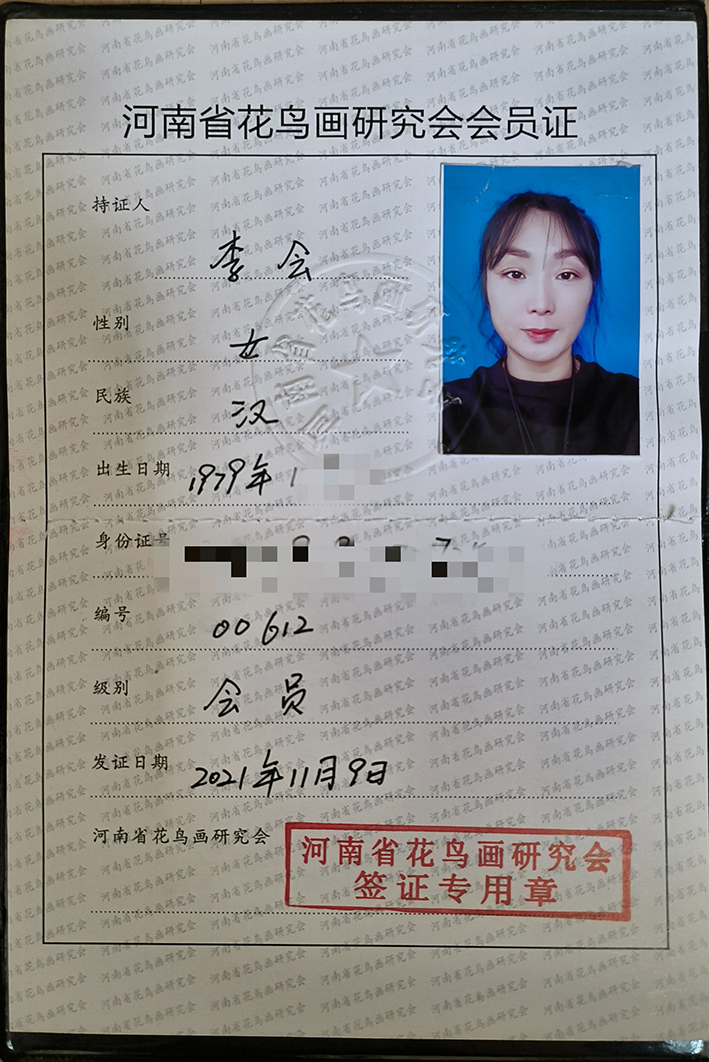 河南省花鸟画研究会会员证
持证人
李会
性别
女
民族
汉
出生日期
1979年1
身份证号
编号
00612
级别
会员
发证日期
2021年11月9日
河南省花鸟画研究会
河南省花鸟画研究会
签证专用章